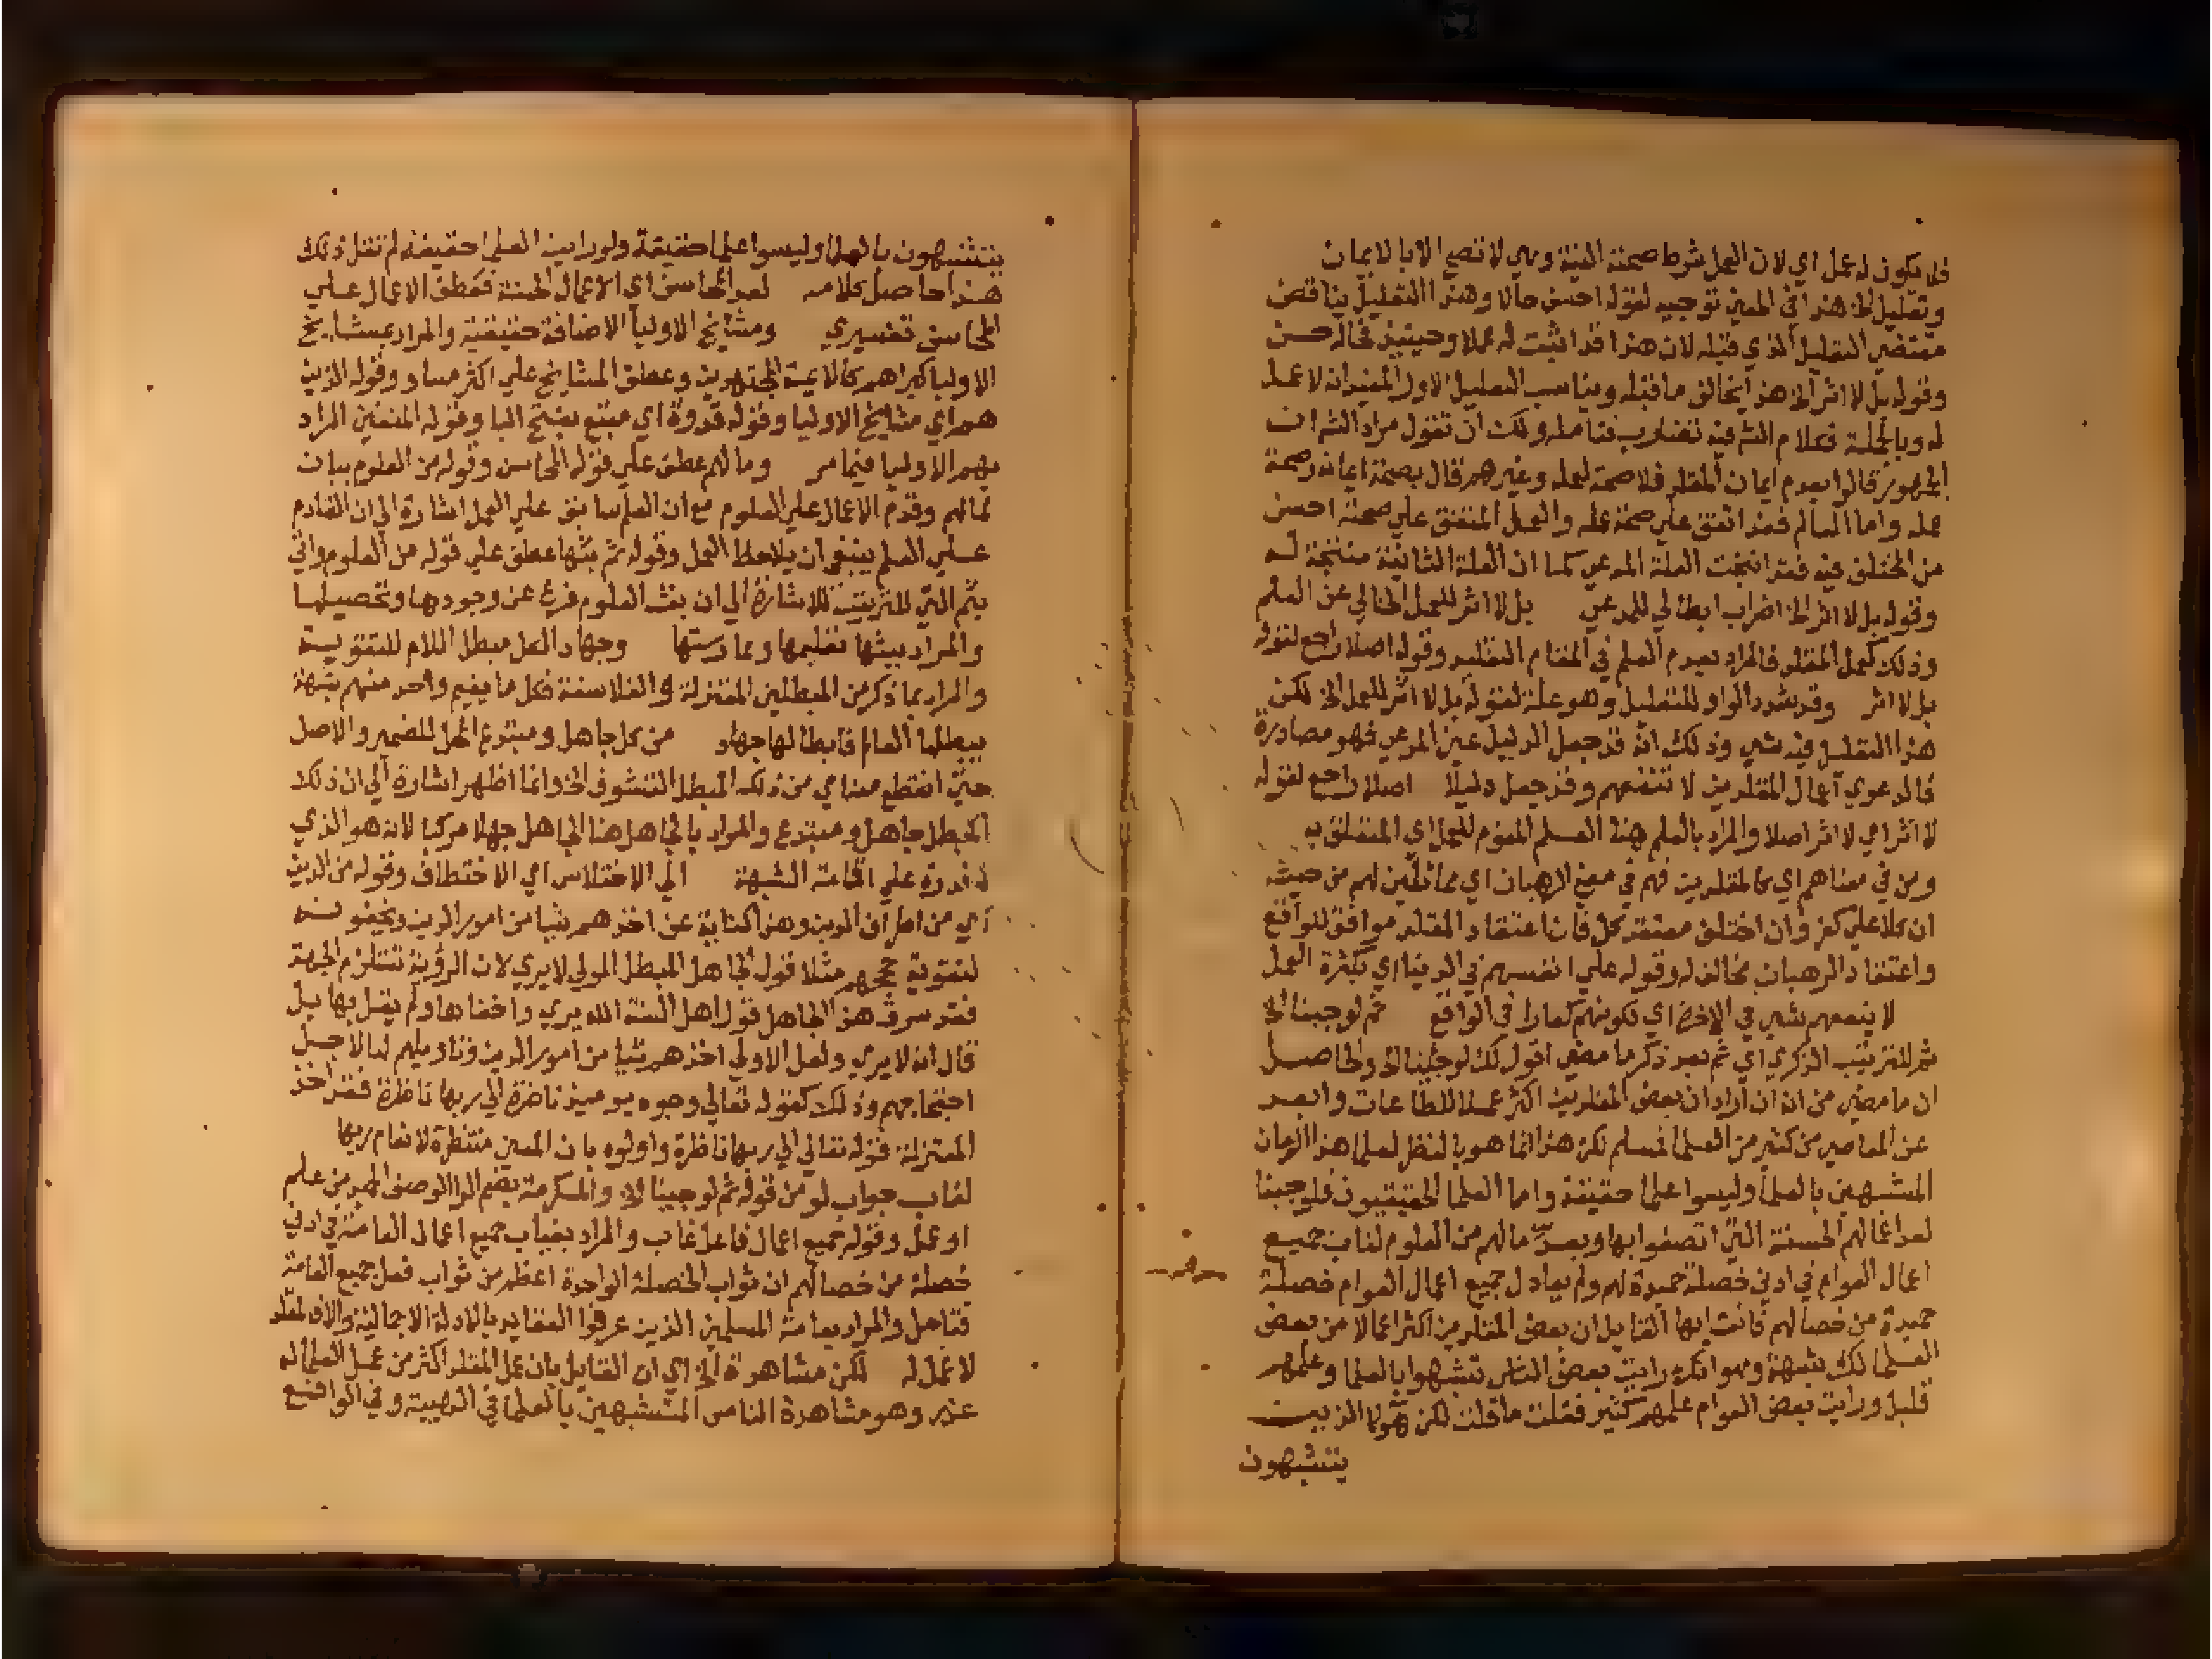 فلا يكون له عمل اي لان العمل شرط صحته النية وهي لا تصح الا بالايمان
وتعليل الخ هذا في المعني توجيه لقوله احسن حالا وهذا التعليل يناقض
مقتضي التعليل الذي قبله لان هذا قد اثبت له عملا وحينيذ فحاله حسن
وقوله بل لا اثر الخ هذا يخالف ما قبله ويناسب التعليل الاول المفيد انه لا عمل
له وبالجملة فكلام الشم فيه تضارب فتامله ولك ان تقول مراد الشم ان
الجمهور قالوا بعدم ايمان المقلد فلا صحة لعمله وغيرهم قال بصحة ايمانه وصحة
عمله واما العالم فقد اتفق علي صحة عمله والعمل المتفق علي صحته احسن
من المختلف فيه فقد انتجت العلة المدعي كما ان العلة الثانية منتجة له
وقوله بل لا اثر الخ اضراب ابطالي للمدعي بل لا اثر للعمل الخالي عن العلم
وذلك كعمل المقلد فالمراد بعدم العلم في المقام التقليد وقوله اصلا راجع لقوله
بل لا اثر وقد تشدد الواو للتعليل وهو علة لقوله بل لا اثر للعمل الخ لكن
هذا التعليل فيه شي وذلك انه قد جعل الدليل عين المدعي فهو مصادرة
فالدعوي اعمال المقلدين لا تنفعهم وقد جعل دليلا اصلا راجع لقوله
لا اثر اي لا اثر اصلا والمراد بالعلم هنا العلم المقوم للعمل اي المتعلق به
ومن في معناهم اي كالمقلدين فهم في معني الرهبان اي مماثلين لهم من حيث
ان كلا علي كفر وان اختلف معتقد كل فان اعتقاد المقلد موافق للواقع
واعتقاد الرهبان مخالف له وقوله علي انفسهم في الدنيا اي بكثرة العمل
لا ينفعهم شي في الاخرة اي لكونهم كفارا في الواقع ثم لو جبنا الخ
ثم للترتيب الذكري اي ثم بعد ذكر ما مضي اقول لك لو جبنا الخ والحاصل
ان ما مضي من انه ان اراد ان بعض المقلدين اكثر عملا للطاعات وابعد
عن المعاصي من كثير من العلما فمسلم لكن هذا انما هو بالنظر لعلما هذا الزمان
المشبهين بالعلما وليسوا علما حقيقة واما العلما الحقيقيون فلو جبنا
لعد اعمالهم الحسنة التي اتصفوا بها وبعد ما لهم من العلوم لغاب جميع
اعمال العوام في ادني خصلة حميدة لهم ولم يعادل جميع اعمال العوام خصلة
حميدة من خصالهم فانت ايها القايل ان بعض المقلدين اكثر اعمالا من بعض
العلما لك شبهة وهو انك رايت بعض الناس تشبهوا بالعلما وعلمهم
قليل ورايت بعض العوام علمهم كثير فقلت ما قلت لكن هولا الذين
يتشبهون
يتشبهون بالعلما وليسوا علما حقيقة ولو رايت العلما حقيقة لم تقل ذلك
هذا حاصل كلامه لعد المحاسن اي الاعمال الحسنة فعطف الاعمال علي
المحاسن تفسيري ومشايخ الاوليا الاضافة حقيقية والمراد بمشايخ
الاوليا كبراهم كالايمة المجتهدين وعطف المشايخ علي اكثر مساو وقوله الذين
هم اي مشايخ الاوليا وقوله قدوة اي متبع بفتح البا وقوله المتقين المراد
بهم الاوليا فيما مر وما لهم عطف علي قوله المحاسن وقوله من العلوم بيان
لمالهم وقدم الاعمال علي العلوم مع ان العلم سابق علي العمل اشارة الي ان القادم
علي العلم ينبغي ان يلاحظ العمل وقوله ثم بثها عطف علي قوله من العلوم واتي
بثم التي للترتيب للاشارة الي ان بث العلوم فرع عن وجودها وتحصيلها
والمراد ببثها تعليمها وممارستها وجهاد العل مبطل اللام للتقوية
والمراد بما ذكر من المبطلين المعتزلة والفلاسفة فكل ما يقيم واحد منهم شبهة
يبطلها العالم فابطالها جهاد من كل جاهل ومبتدع المحل للضمير والاصل
حتي انقطع مبنا مي من ذلك المبطل التشوف الخ وانما اظهر اشارة الي ان ذلك
المبطل جاهل ومبتدع والمراد بالجاهل هنا الجاهل جهلا مركبا لانه هو الذي
له قدرة علي اقامة الشبهة الي الاختلاس اي الاختطاف وقوله من الدين
اي من اطراف الدين وهذا كناية عن اخذهم شيا من امور الدين ويخفونه
لتقوية حججهم مثلا قول الجاهل المبطل المولي لا يري لان الروية تستلزم الجهة
فقد سرق هذا الجاهل قول اهل السنة الله يري واخفاها ولم يقل بها بل
قال انه لا يري ولعل الاولي اخذهم شيا من امور الدين وتاويلهم لها لاجل
احتجاجهم وذلك كقوله تعالي وجوه يوميذ ناضرة الي ربها ناظرة فقد اخذ
المعتزلة قوله تعالي الي ربها ناظرة واولوه بان المعني منتظرة لانعام ربها
لغاب جواب لو من قوله ثم لو جبنا الخ والمكرمة بضم الرا الوصف الحميد من علم
او عمل وقوله جميع اعمال فاعل غاب والمراد بغياب جميع اعمال العامة في ادني
خصلة من خصالهم ان ثواب الخصلة الواحدة اعظم من ثواب فعل جميع العامة
فتامل والمراد بعامة المسلمين الذين عرفوا العقايد بالادلة الاجمالية والا فالمقلد
لا عمل له لكن مشاهدة الخ اي ان القايل بان عمل المقلد اكثر من عمل العلما له
عذر وهو مشاهدة الناس المتشبهين بالعلما في الهيية وفي الواقع